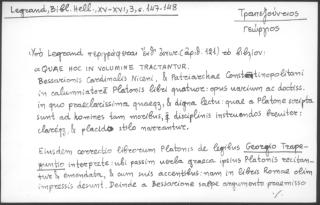 Legrand, Bibl. Hell., XV-XVI, 3, σ. 147-148
Τραπεζούντιος
Γεώργιος
Ὑπὸ Legrand περιγράφεται
(ἀρ. 121) τὸ βιβλίον:
« QUAE HOC IN VOLUMINE TRACTANTUR.
Bessarionis Cardinalis Niceni, & Patriarchae Constantinopolitani
in calumniatorē Platonis libri quatuor: opus uarium ac doctiss.
in quo praeclarissima quaeqз & digna lectu: quae a Platone scripta
sunt ad homines tam moribus, qӡ disciplinis instruendos breuiter:
clareqз, & placido stilo narrantur.
Eiusdem correctio librorum Platonis de legibus Georgio Trape-
zuntio interprete: ubi passim uerba graeca ipsius Platonis recitan-
tur & emendata, & cum suis accentibus: nam in libris Romae olim
impressis desunt. Deinde a Bessarione saepe argumento praemisso
./.